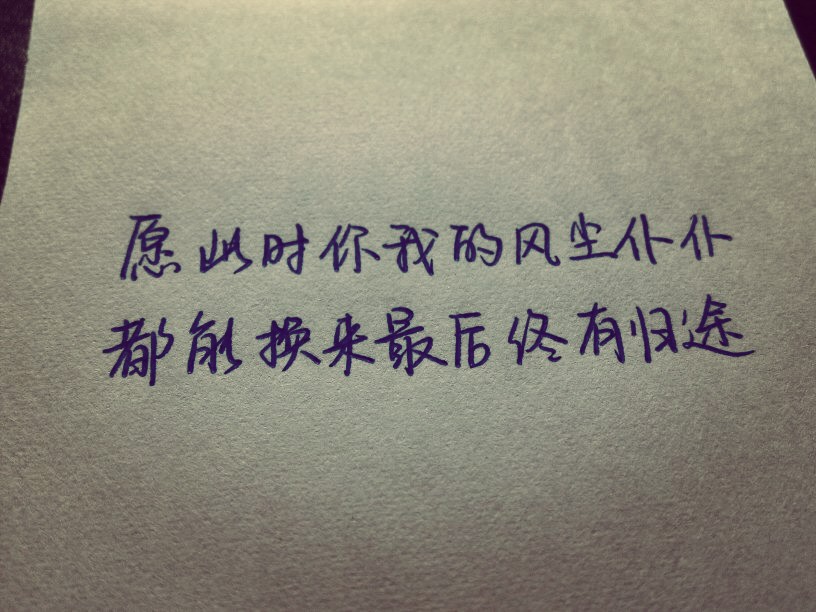 愿此时你我的风尘仆仆
都能换来最后终有归途